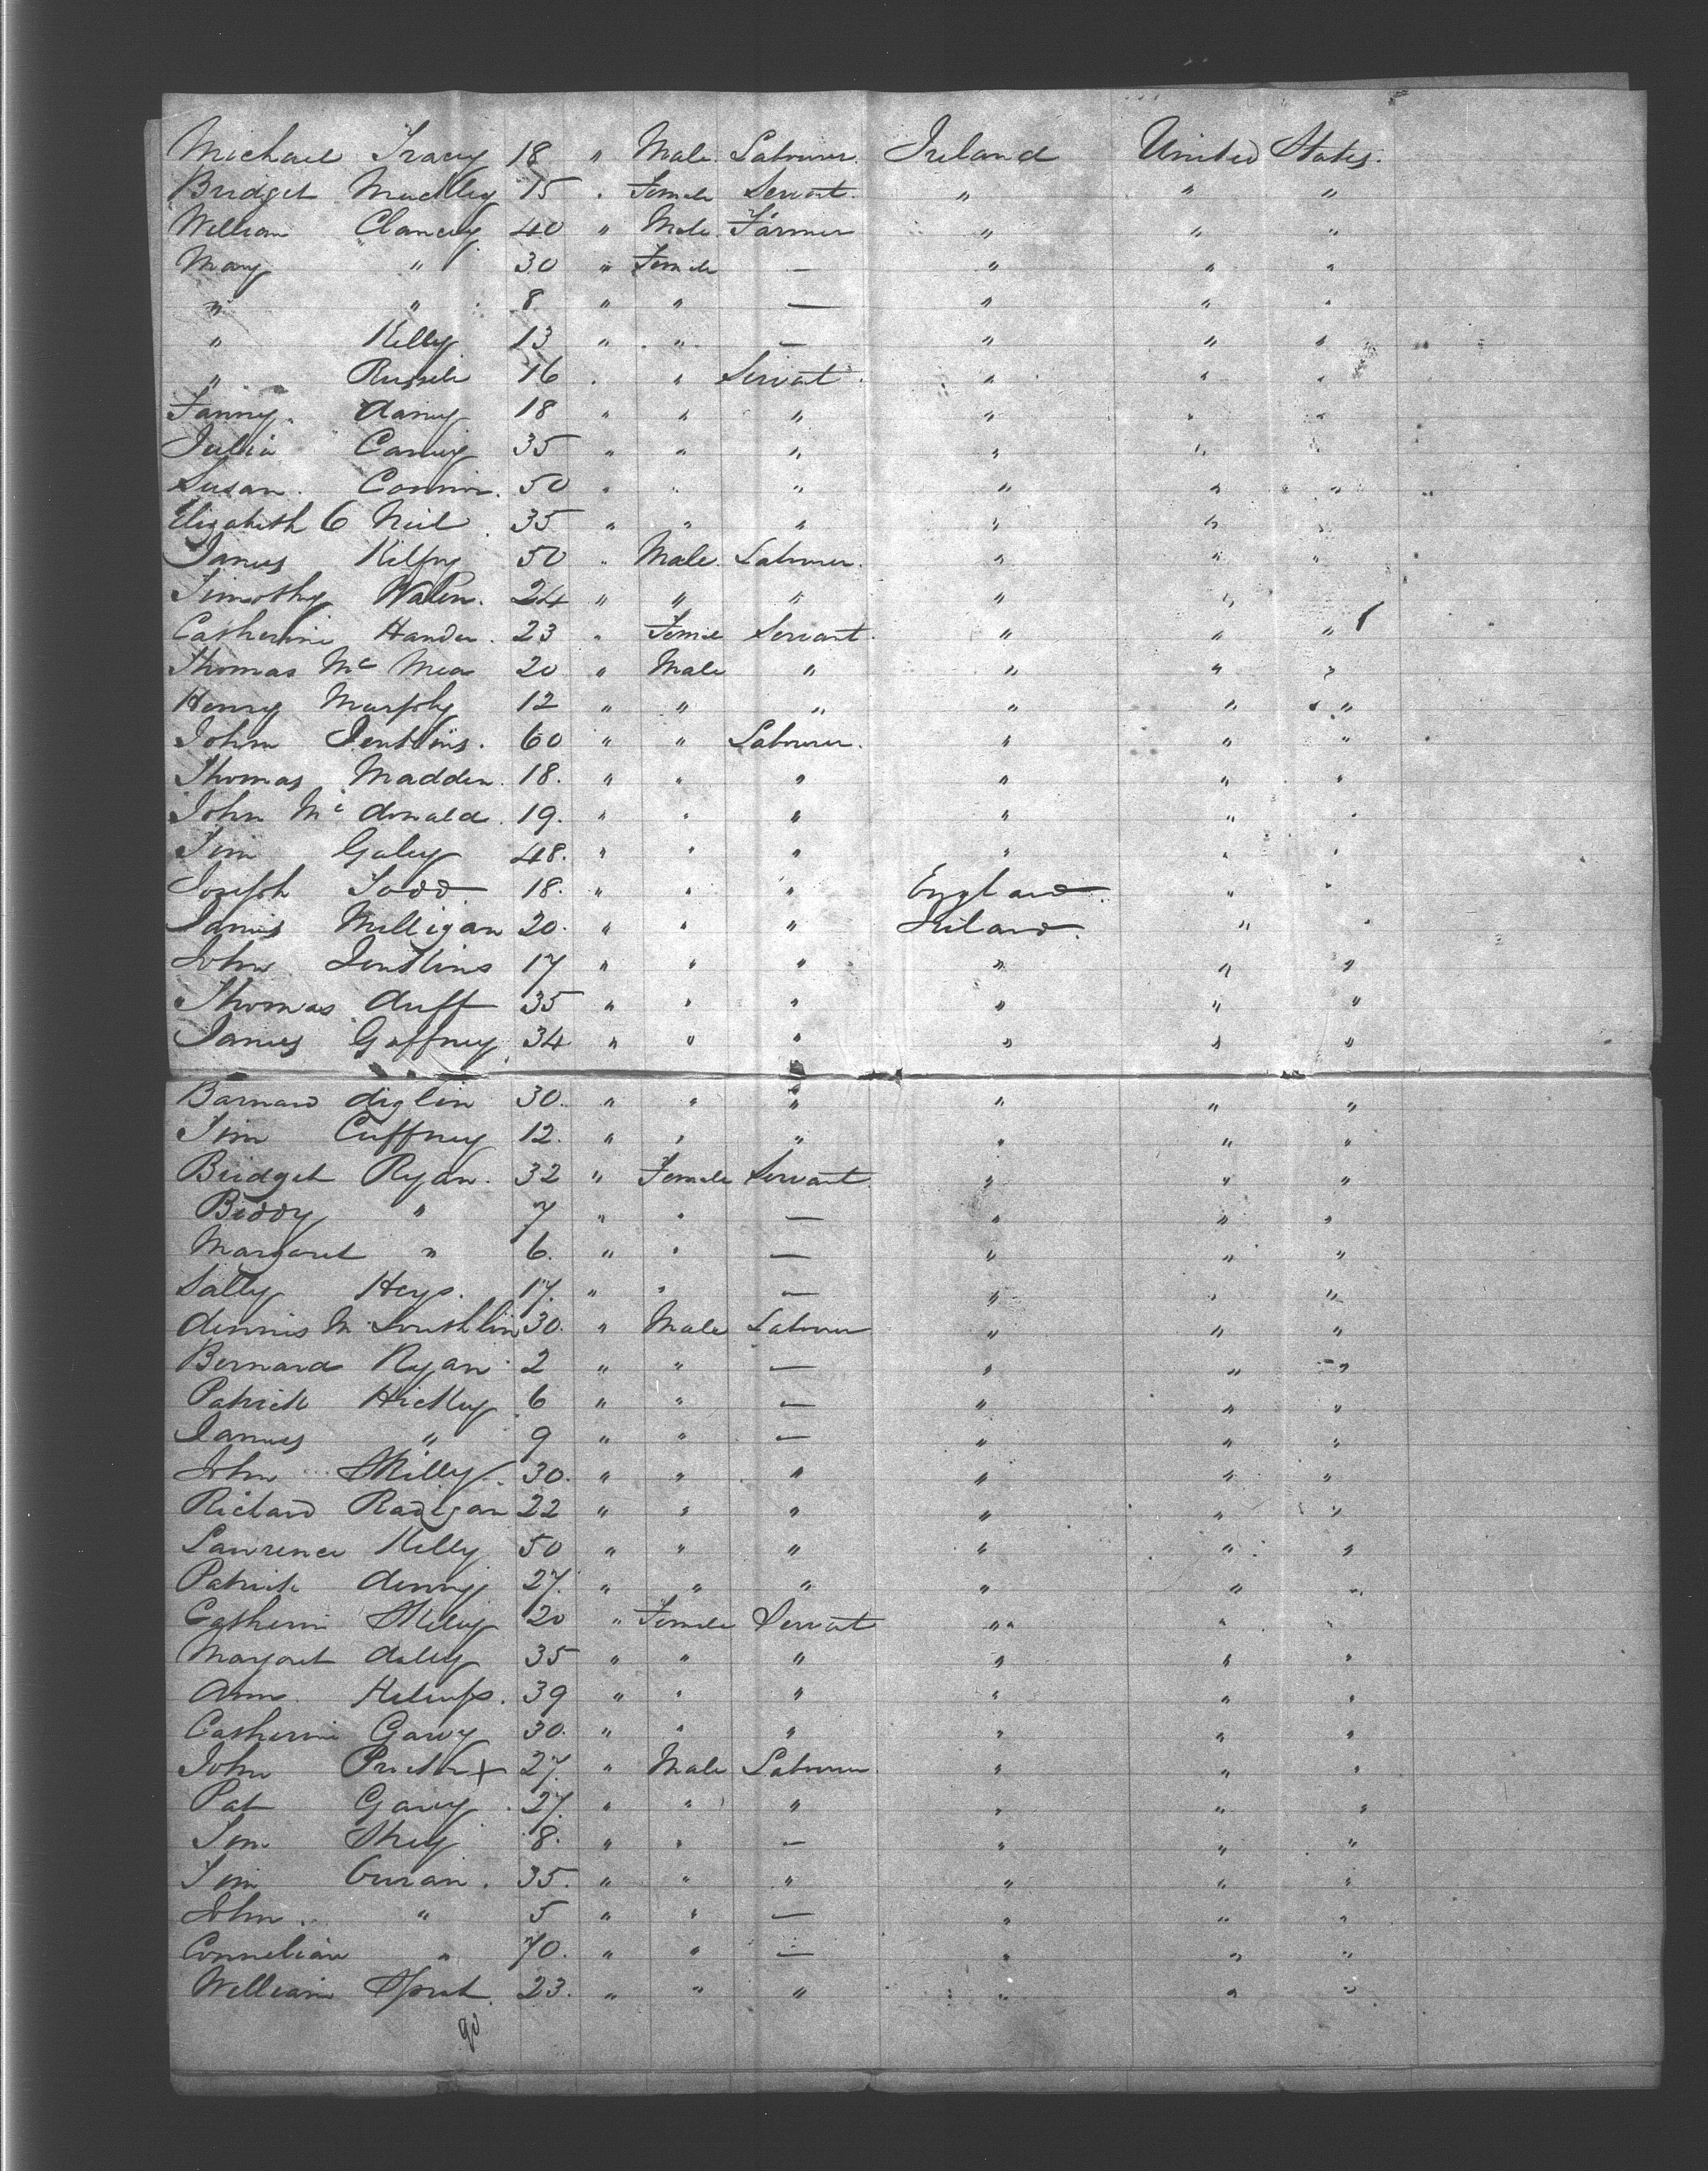 Michael Tracey 18 " Male Labourer. Ireland United States.
Bridget 15 " Female Servant. " " "
William Clancey 40 " Male Farmer " " "
Mary " 30 " Female — " " "
" " 8 " " — " " "
" Kelly 13 " " — " " "
" 16 " " Servat. " " "
Fanny 18 " " " " " "
Julia 35 " " " " " "
Susan. Connor. 50 " " " " " "
Elizabeth O Neil 35 " " " " " "
James 50 " Male. Labourer. " " "
Timothy 24 " " " " " "
Catherine 23 " Female Servant. " " "
Thomas Mc 20 " Male " " " "
Henry Murphy 12 " " " " " "
John Jenkins. 60 " " Labourer. " " "
Thomas Madden. 18. " " " " " "
John Mc donald. 19. " " " " " "
Tim Galey 48. " " " " " "
Joseph Todd 18. " " " England. " "
James Milligan 20. " " " Ireland. " "
John Jenkins 17 " " " " " "
Thomas duff 35 " " " " " "
James Gaffney 34 " " " " " "
Barnard diglin 30. " " " " " "
Tim Cuffney 12. " " " " " "
Bridget Ryan. 32 " Female Servant. " " "
Biddy " 7 " " — " " "
Margaret " 6. " " — " " "
Sally Heys. 17. " " — " " "
dennis Mc Loughlin 30. " Male Labourer " " "
Bernard Ryan 2 " " — " " "
Patrick Hickey 6 " " — " " "
James " 9 " " — " " "
John Skilly 30. " " " " " "
Richard Radigan 22 " " " " " "
Lawrence Kelly 50 " " " " " "
Patrick denny 27. " " " " " "
Catherin 20 " Female Servat " " "
Margaret daley 35 " " " " " "
Ann. 39 " " " " " "
Catherine Garvy 30. " " " " " "
John 27. " Male Labourer. " " "
Pat Garvy. 27. " " " " " "
Tim 8. " " — " " "
Tim Curan. 35. " " " " " "
John " 5 " " — " " "
" 70. " " — " " "
William 23. " " " " " "
90